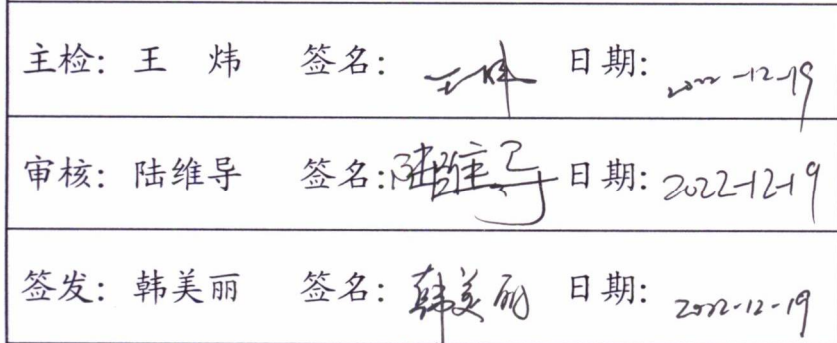 主检: 王 炜 签名: 王炜 日期: 2022-12-19
审核: 陆维导 签名: 陆维导 日期: 2022-12-19
签发: 韩美丽 签名: 韩美丽 日期: 2022-12-19